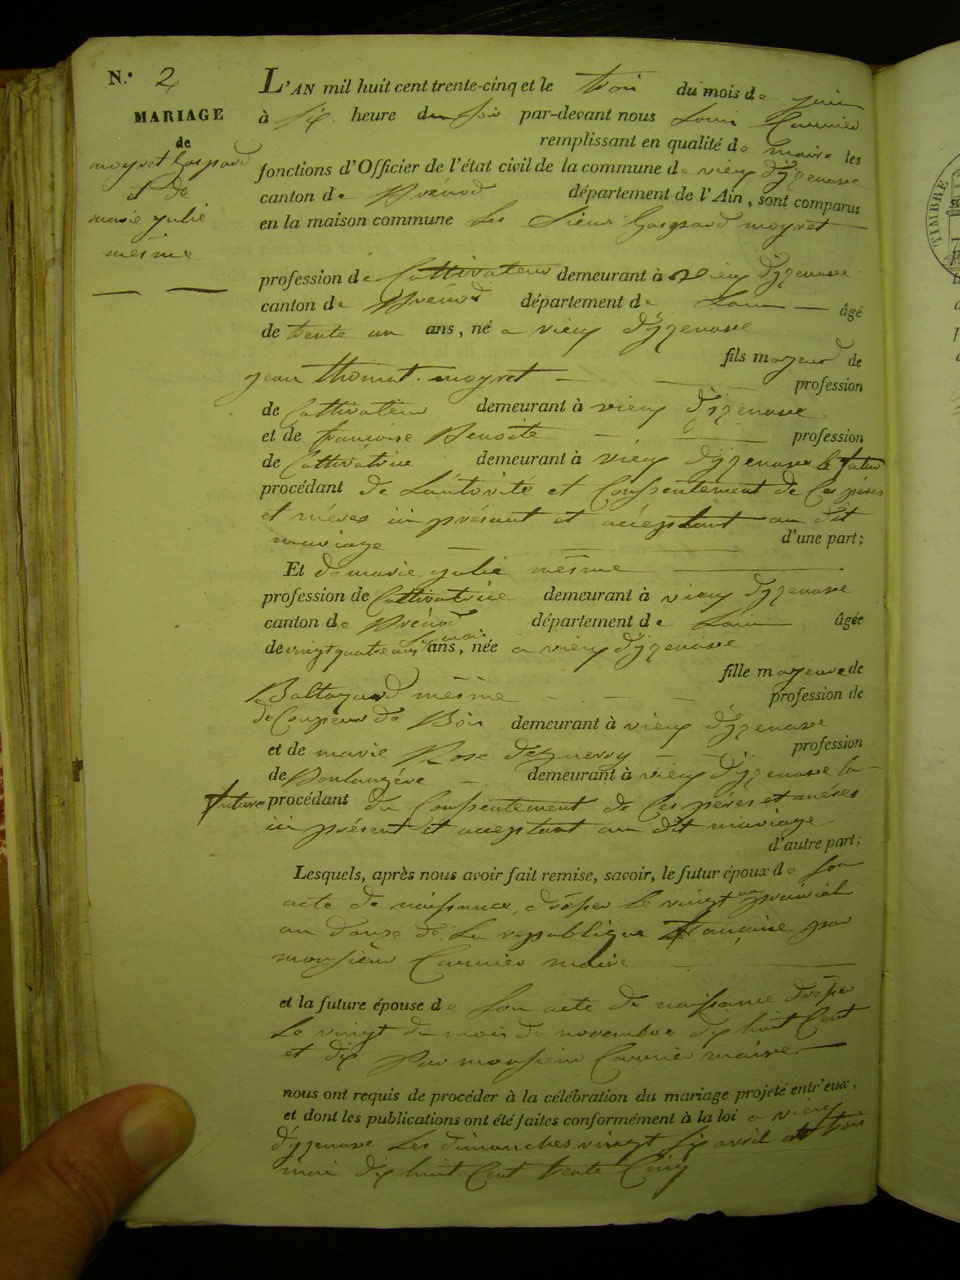 N.° 2
MARIAGE
de
moyret Gaspard
et de
marie julie
mesme
L'AN mil huit cent trente-cinq et le trois du mois de juin
à six heure du soir par-devant nous Louis Carrier
remplissant en qualité de maire les
fonctions d'Officier de l'état civil de la commune de vieu d'izenave
canton de Brénod département de l'Ain, sont comparus
en la maison commune Le Sieur Gaspard moyret
profession de Cultivateur demeurant à vieu d'izenave
canton de Brénod département de Lain âgé
de trente un ans, né a vieu d'izenave
fils mayeur de
jean thomat moyret profession
de Cultivateur demeurant à vieu d'izenave
et de francoise Benoite profession
de Cultivatrice demeurant à vieu d'izenave le futur
procédant de Lautorité et Consentement de Ces pères
et mères ici présant et acceptant au dit
mariage d'une part;
Et de marie julie mesme
profession de Cultivatrice demeurant à vieu d'izenave
canton de Brénod département de Lain âgée
de vingt quatre ans six mois ans, née a vieu d'izenave
fille mayeure de
Baltazard mesme profession de
de Coupeur de Bois demeurant à vieu d'izenave
et de marie Rose profession
de Boulangére demeurant à vieu d'izenave la
future procédant du Consentement de Ces pères et mères
ici présent et acceptant au dit mariage
d'autre part;
Lesquels, après nous avoir fait remise, savoir, le futur époux de son
acte de naissance, drésser le vingt un prairial
an douze de La republique francaise par
monsieur Carrier maire
et la future épouse de son acte de naissance drésser
Le vingt du mois de novembre dix huit Cent
et dix par monsieur Carrier maire
nous ont requis de procéder à la célébration du mariage projeté entr'eux,
et dont les publications ont été faites conformément à la loi a vieu
d'izenave Les dimanches vingt six avril et trois
mai dix huit Cent trente Cinq
TIMBRE